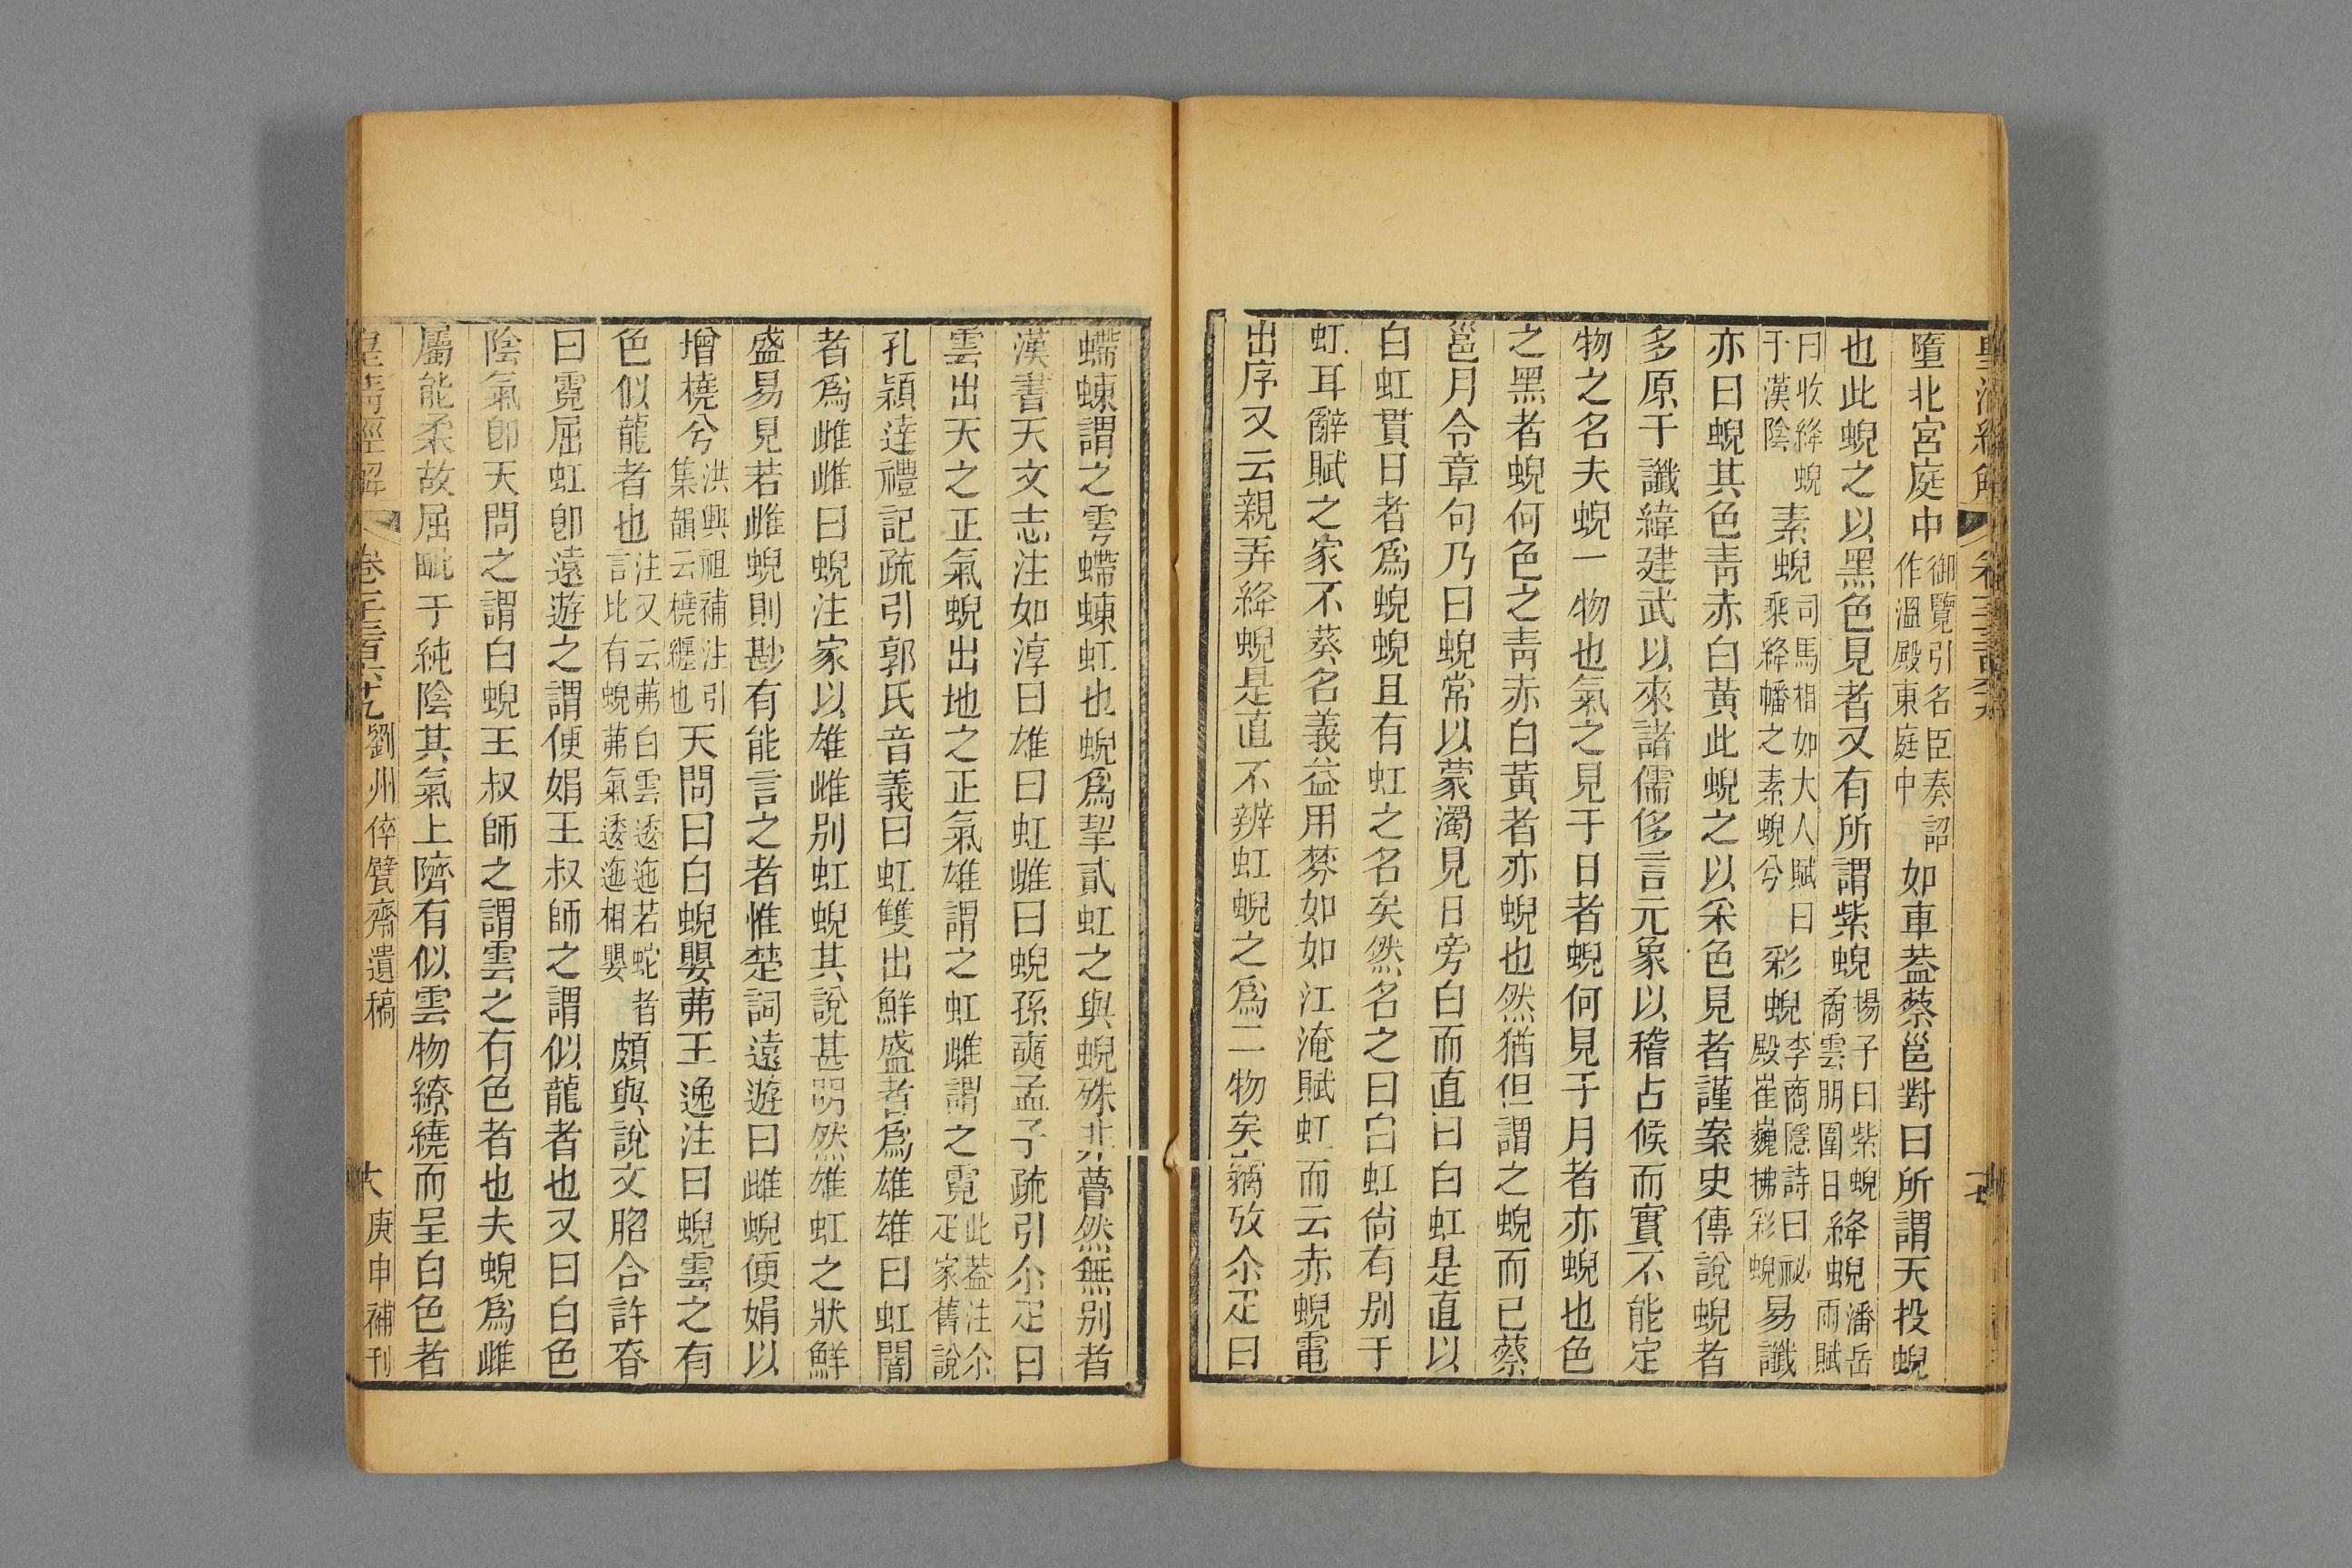 墮北宮庭中御覽引名臣奏詔作溫殿東庭中如車葢蔡邕對曰所謂天投蜺
也此蜺之以黑色見者又有所謂紫蜺揚子曰紫蜺矞雲朋圍日絳蜺潘岳雨賦
曰收絳蜺于漢陰素蜺司馬相如大人賦曰乘絳幡之素蜺兮彩蜺李商隱詩曰祕殿崔巍拂彩蜺易讖
亦曰蜺其色靑赤白黃此蜺之以采色見者謹案史傳說蜺者
多原于讖緯建武以來諸儒侈言元象以稽占候而實不能定
物之名夫蜺一物也氣之見于日者蜺何見于月者亦蜺也色
之黑者蜺何色之靑赤白黃者亦蜺也然猶但謂之蜺而已蔡
邕月令章句乃曰蜺常以蒙濁見日旁白而直曰白虹是直以
白虹貫日者爲蜺蜺且有虹之名矣然名之曰白虹尙有别于
虹耳辭賦之家不葵名義益用棼如如江淹賦虹而云赤蜺電
出序又云親弄絳蜺是直不辨虹蜺之爲二物矣竊攷尒疋曰
螮蝀謂之雩螮蝀虹也蜺爲挈貳虹之與蜺殊非瞢然無别者
漢書天文志注如淳曰雄曰虹雌曰蜺孫奭孟子疏引尒疋曰
雲出天之正氣蜺出地之正氣雄謂之虹雌謂之霓此葢注尒疋家舊說
孔穎達禮記疏引郭氏音義曰虹雙出鮮盛者爲雄雄曰虹闇
者爲雌雌曰蜺注家以雄雌别虹蜺其說甚明然雄虹之狀鮮
盛易見若雌蜺則尠有能言之者惟楚詞遠遊曰雌蜺便娟以
增橈兮洪興祖補注引集韻云橈纏也天問曰白蜺嬰茀王逸注曰蜺雲之有
色似龍者也注又云茀白雲逶迤若蛇者言比有蜺茀氣逶迤相嬰頗與說文脗合許𡘋
曰霓屈虹卽遠遊之謂便娟王叔師之謂似龍者也又曰白色
陰氣卽天問之謂白蜺王叔師之謂雲之有色者也夫蜺爲雌
屬能柔故屈呲于純陰其氣上隮有似雲物繚繞而呈白色者
皇淸經解 劉州倅甓齋遺稿 庚申補刊